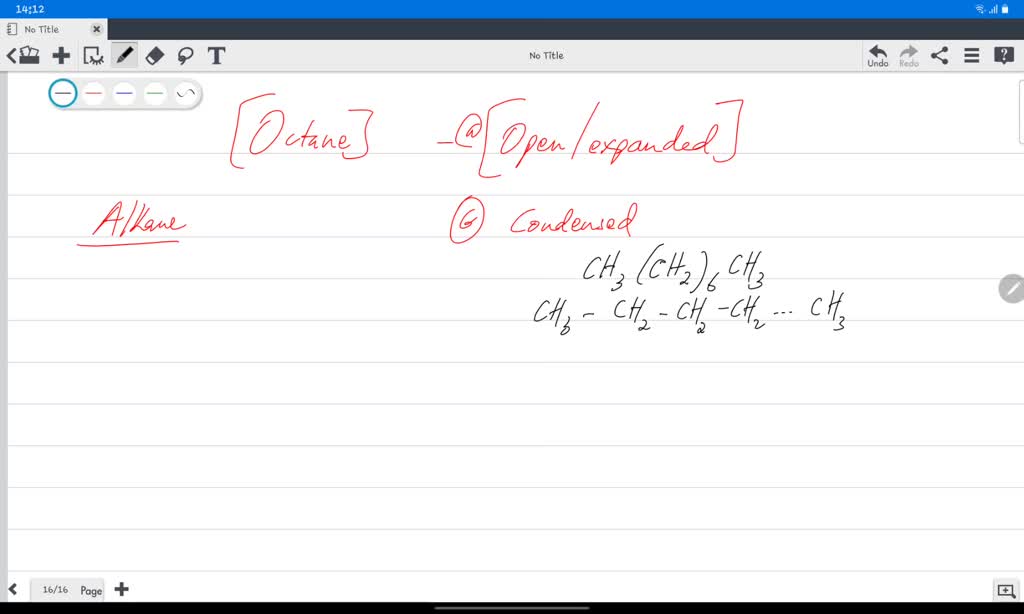 14:12
No Title
No Title
Undo Redo
[Octane] - (a) [Open/expanded]
Alkane
(b) Condensed
CH₃ (CH₂)₆ CH₃
CH₃ - CH₂ - CH₂ - CH₂ ... CH₃
16/16 Page